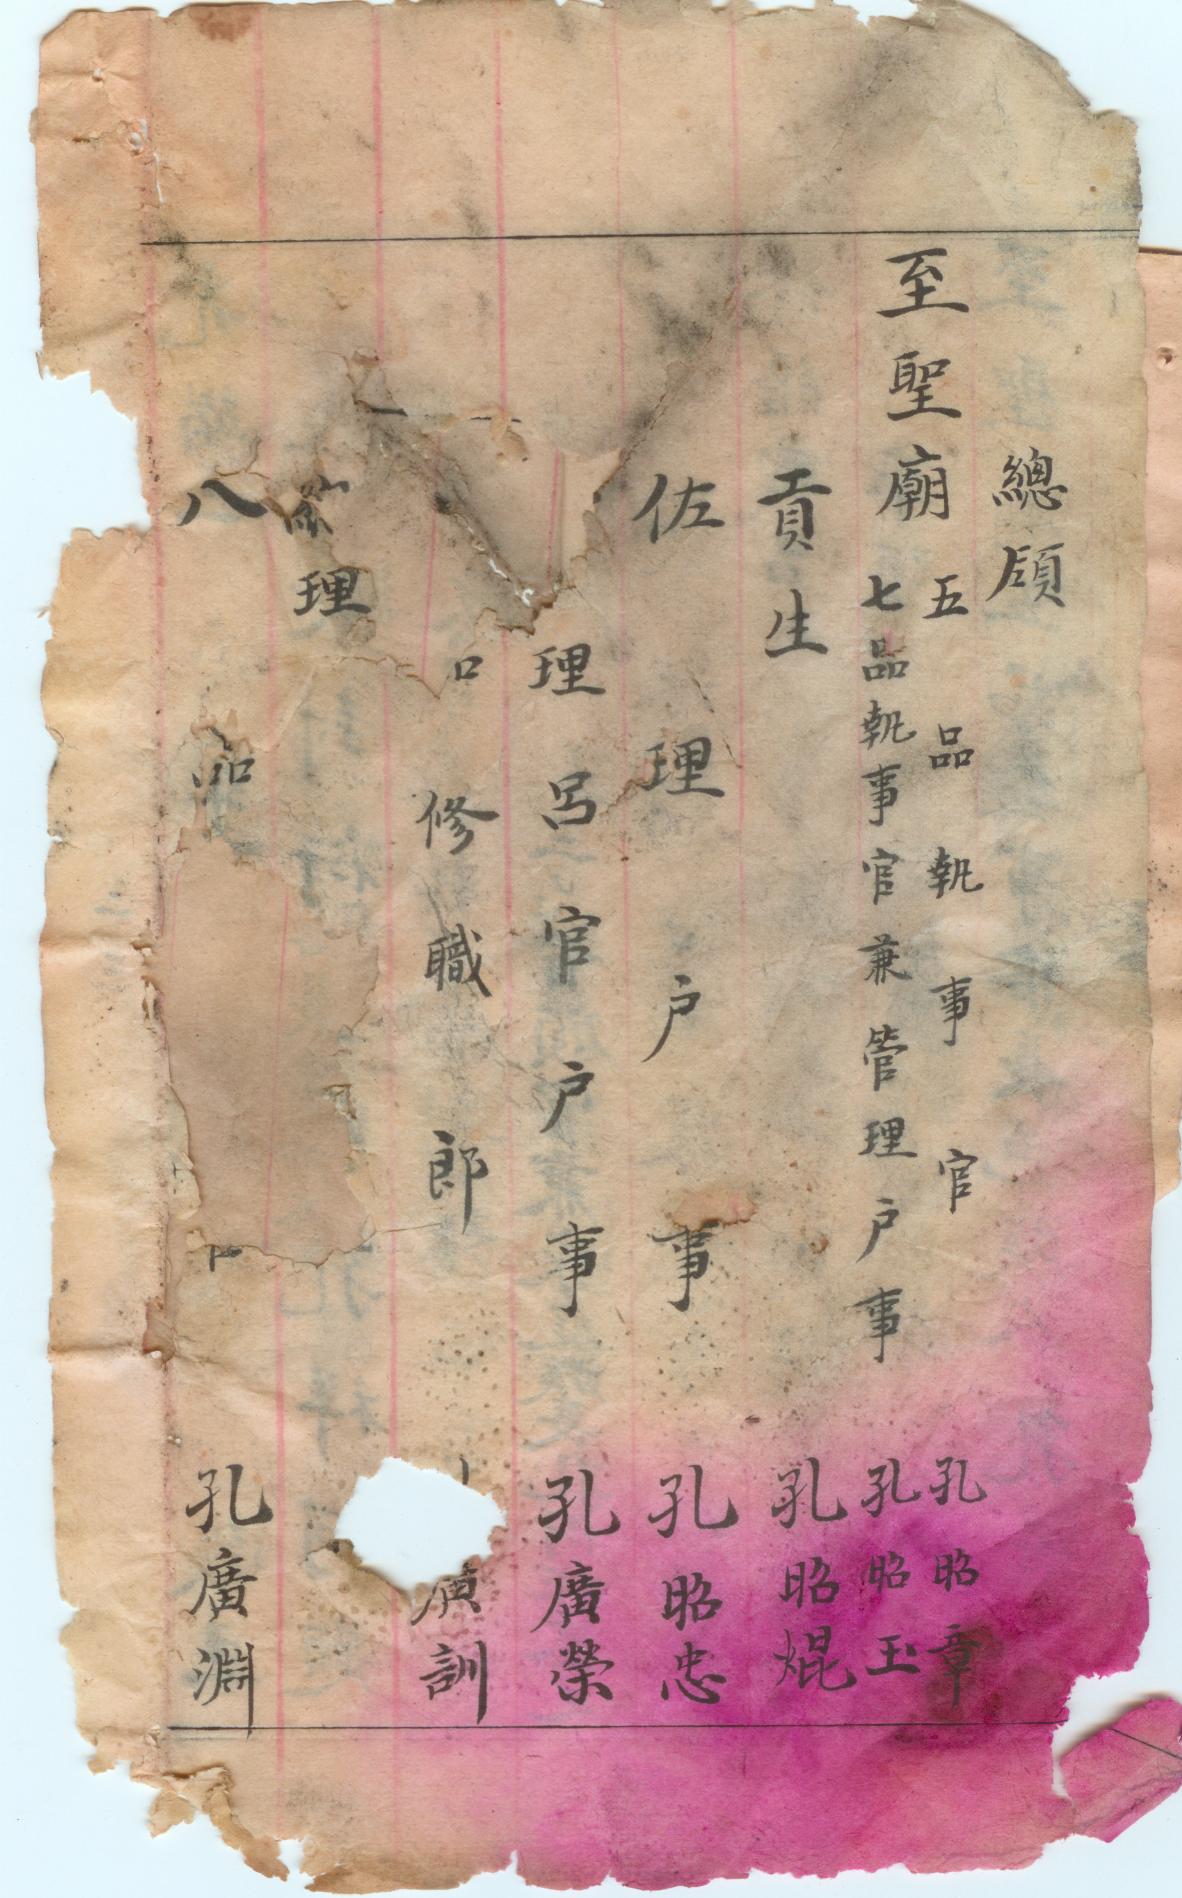 總領
至聖廟
五品執事官 孔昭章
七品執事官兼管理户事 孔昭玉
貢生 孔昭焜
佐理户事 孔昭忠
理呂官户事 孔廣榮
修職郎 廣訓
理
八品 孔廣淵